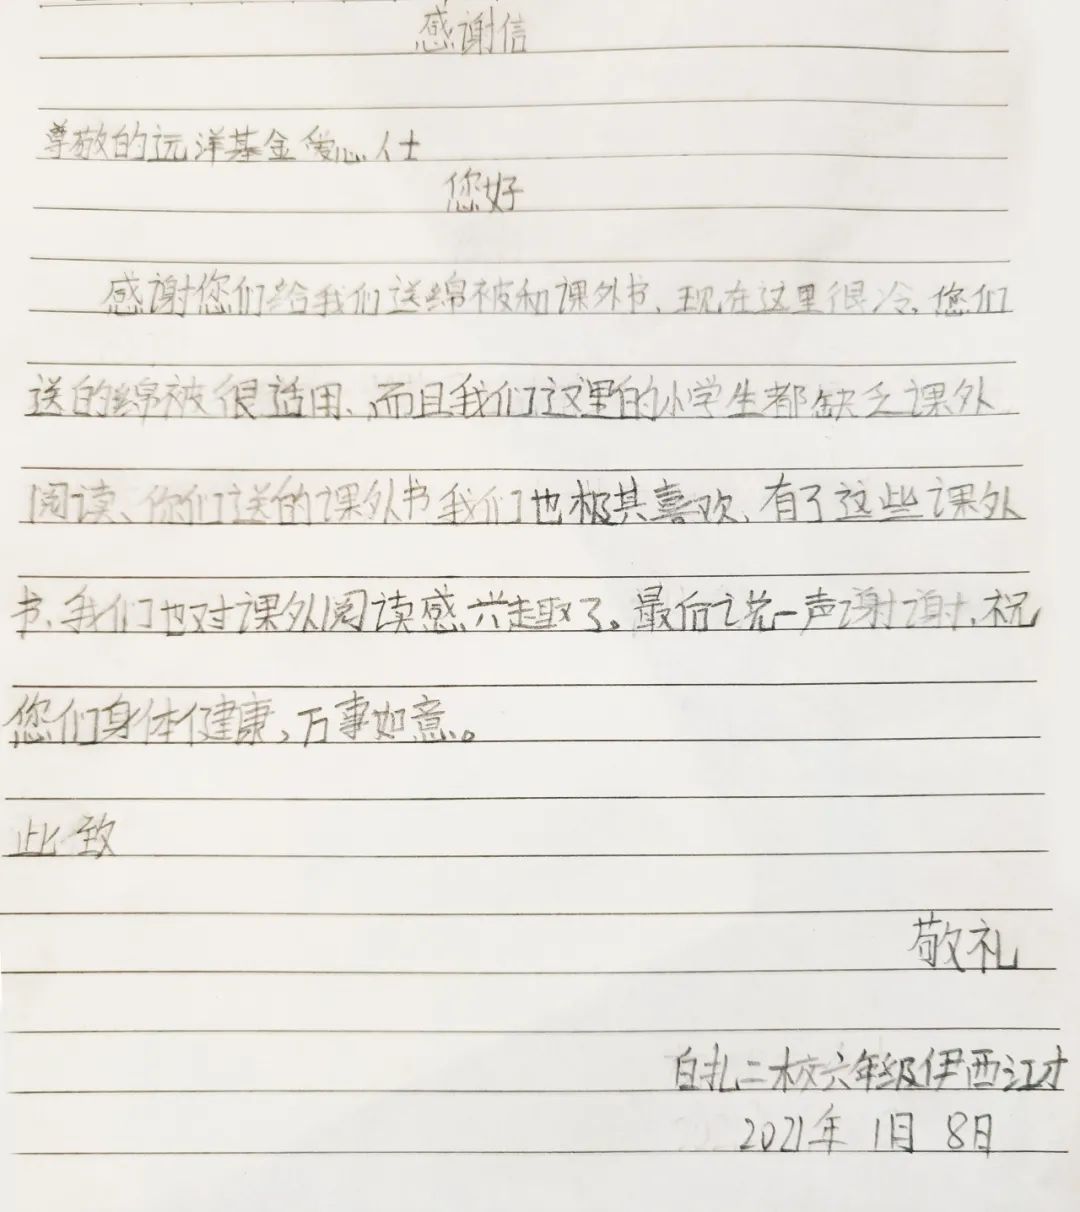 感谢信
尊敬的远洋基金爱心人仕
您好
感谢您们给我们送绵被和课外书、现在这里很冷,您们
送的绵被很适用、而且我们这里的小学生都缺乏课外
阅读、你们送的课外书我们也极其喜欢、有了这些课外
书、我们也对课外阅读感兴趣了。最后说一声谢谢、祝
您们身体健康,万事如意。
此致
敬礼
白扎二校六年级伊西江才
2021年 1月 8日